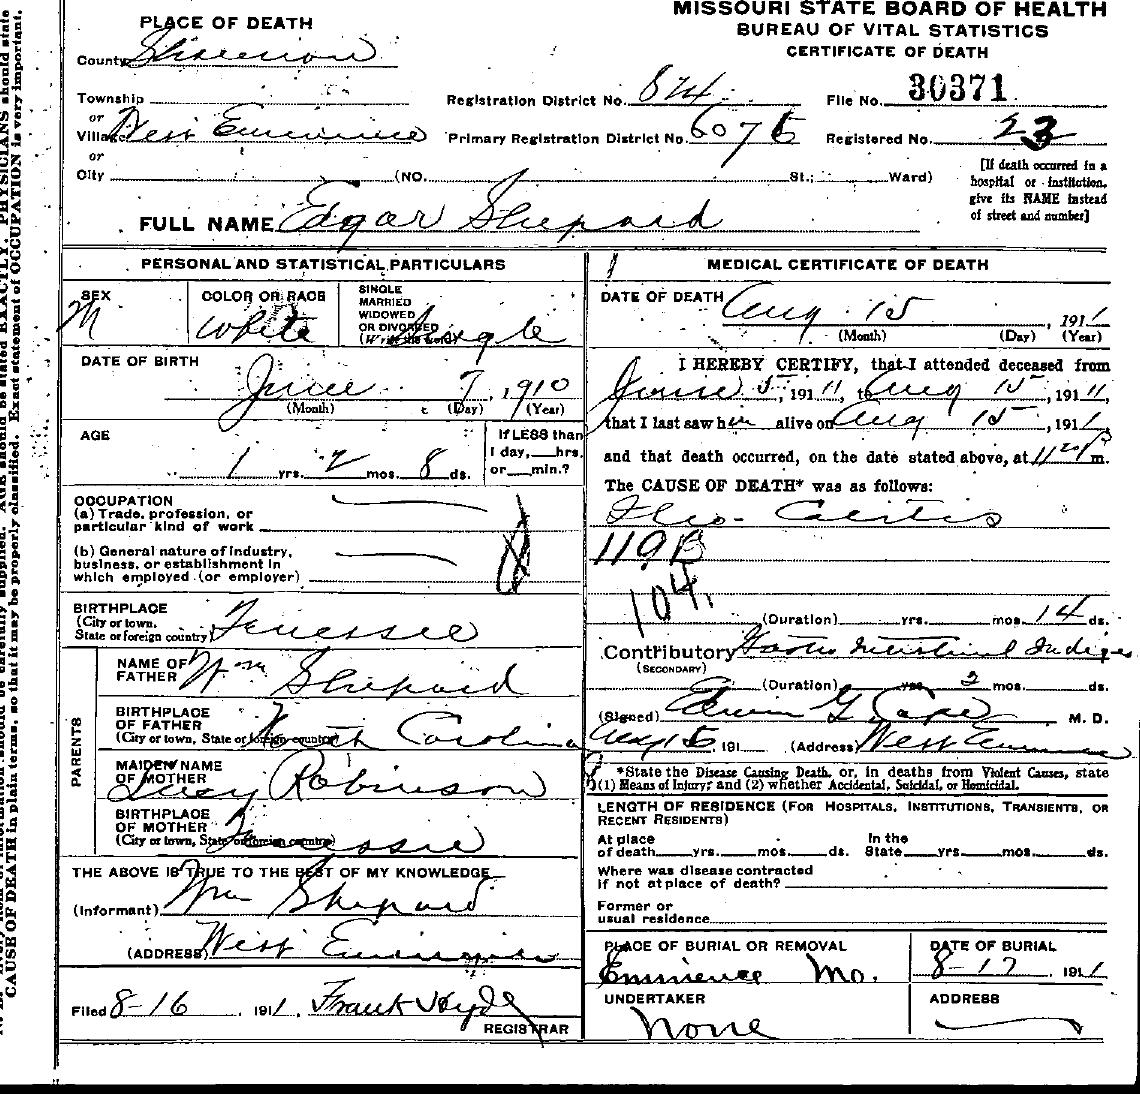 MISSOURI STATE BOARD OF HEALTH
BUREAU OF VITAL STATISTICS
CERTIFICATE OF DEATH
PLACE OF DEATH
County Shannon
Township
or
Village West Eminence
or
City (NO. St.; Ward)
Registration District No. 814
File No. 30371
Primary Registration District No. 6075
Registered No. 23
[If death occurred in a
hospital or institution,
give its NAME instead
of street and number]
FULL NAME Edgar Shepard
PERSONAL AND STATISTICAL PARTICULARS
SEX
M
COLOR OR RACE
White
SINGLE
MARRIED
WIDOWED
OR DIVORCED
(Write the word) Single
DATE OF BIRTH
June 7, 1910
(Month) (Day) (Year)
AGE
1 yrs. 2 mos. 8 ds.
If LESS than
1 day, hrs.
or min.?
OCCUPATION
(a) Trade, profession, or
particular kind of work
(b) General nature of industry,
business, or establishment in
which employed (or employer)
BIRTHPLACE
(City or town,
State or foreign country) Tenessee
PARENTS
NAME OF
FATHER Wm Shepard
BIRTHPLACE
OF FATHER
(City or town, State or foreign country) North Carolina
MAIDEN NAME
OF MOTHER Lucy Robinson
BIRTHPLACE
OF MOTHER
(City or town, State or foreign country)
THE ABOVE IS TRUE TO THE BEST OF MY KNOWLEDGE
(Informant) Wm Shepard
(ADDRESS) West Eminence
Filed 8-16, 1911, Frank Hyde
REGISTRAR
MEDICAL CERTIFICATE OF DEATH
DATE OF DEATH Aug. 15, 1911
(Month) (Day) (Year)
I HEREBY CERTIFY, that I attended deceased from
June 5, 1911, to Aug 15, 1911,
that I last saw him alive on Aug 15, 1911
and that death occurred, on the date stated above, at 1120 P m.
The CAUSE OF DEATH* was as follows:
Ileo-Colitis
119B
104.
(Duration) yrs. mos. 14 ds.
Contributory Gastro Intestinal Indiges
(SECONDARY)
(Duration) yrs. 2 mos. ds.
(Signed) Edwin G. M. D.
Aug 15 191 (Address) West Eminence
*State the Disease Causing Death, or, in deaths from Violent Causes, state
(1) Means of Injury; and (2) whether Accidental, Suicidal, or Homicidal.
LENGTH OF RESIDENCE (FOR HOSPITALS, INSTITUTIONS, TRANSIENTS, OR
RECENT RESIDENTS)
At place In the
of death yrs. mos. ds. State yrs. mos. ds.
Where was disease contracted
if not at place of death?
Former or
usual residence
PLACE OF BURIAL OR REMOVAL
Eminence Mo.
DATE OF BURIAL
8-17, 1911
UNDERTAKER
None
ADDRESS
CAUSE OF DEATH in plain terms, so that it may be properly classified. Exact statement of OCCUPATION is very important.